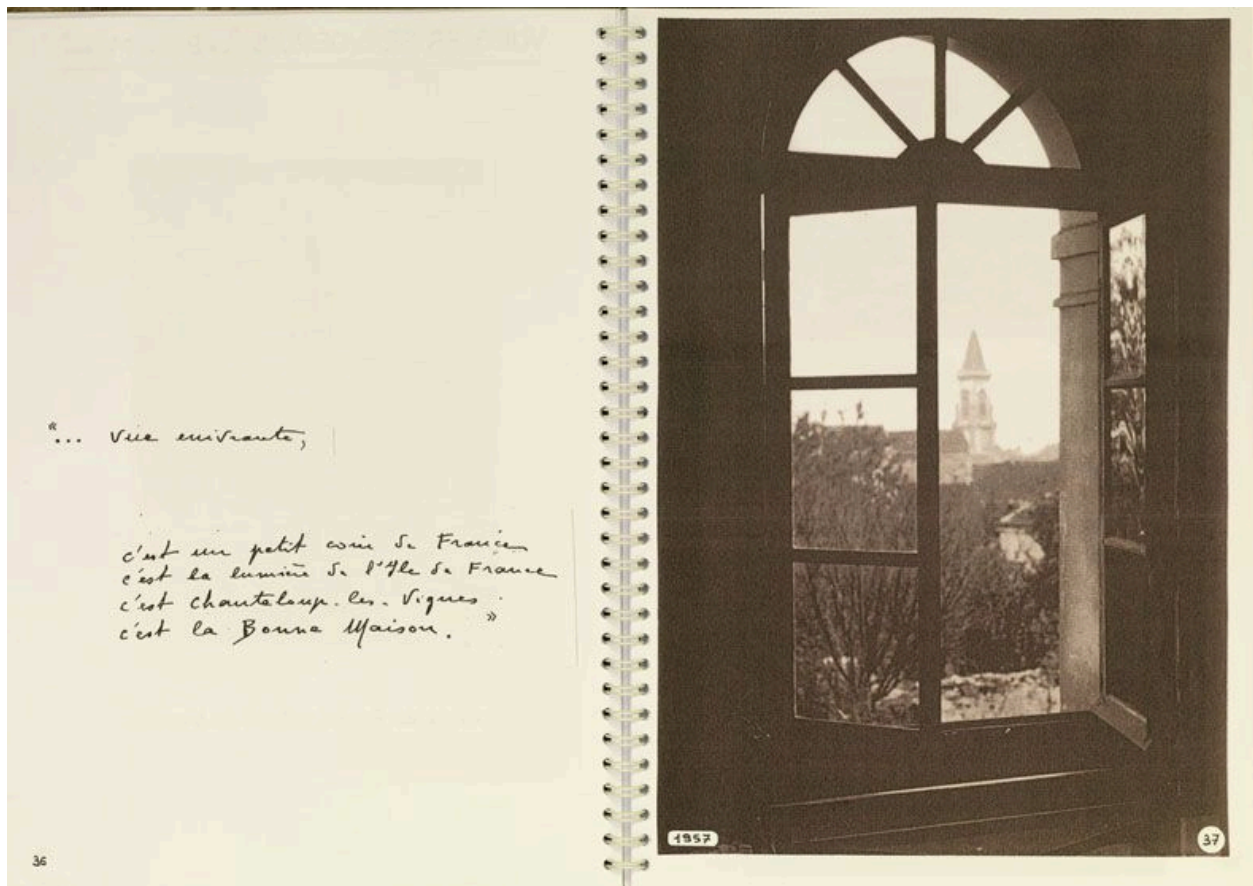 "... vue enivrante,
c'est un petit coin de France
c'est la lumière de l'Ile de France
c'est Chanteloup-les-Vignes.
c'est la Bonne Maison. "
36
1957
37